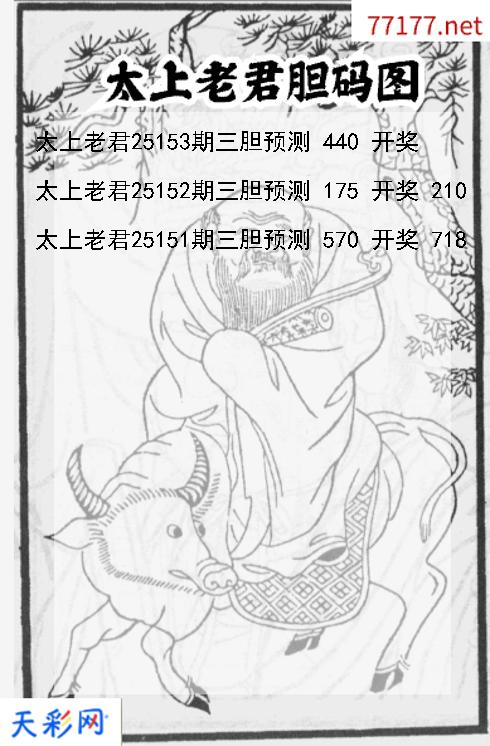 77177.net
太上老君胆码图
太上老君25153期三胆预测 440 开奖
太上老君25152期三胆预测 175 开奖 210
太上老君25151期三胆预测 570 开奖 718
天彩网